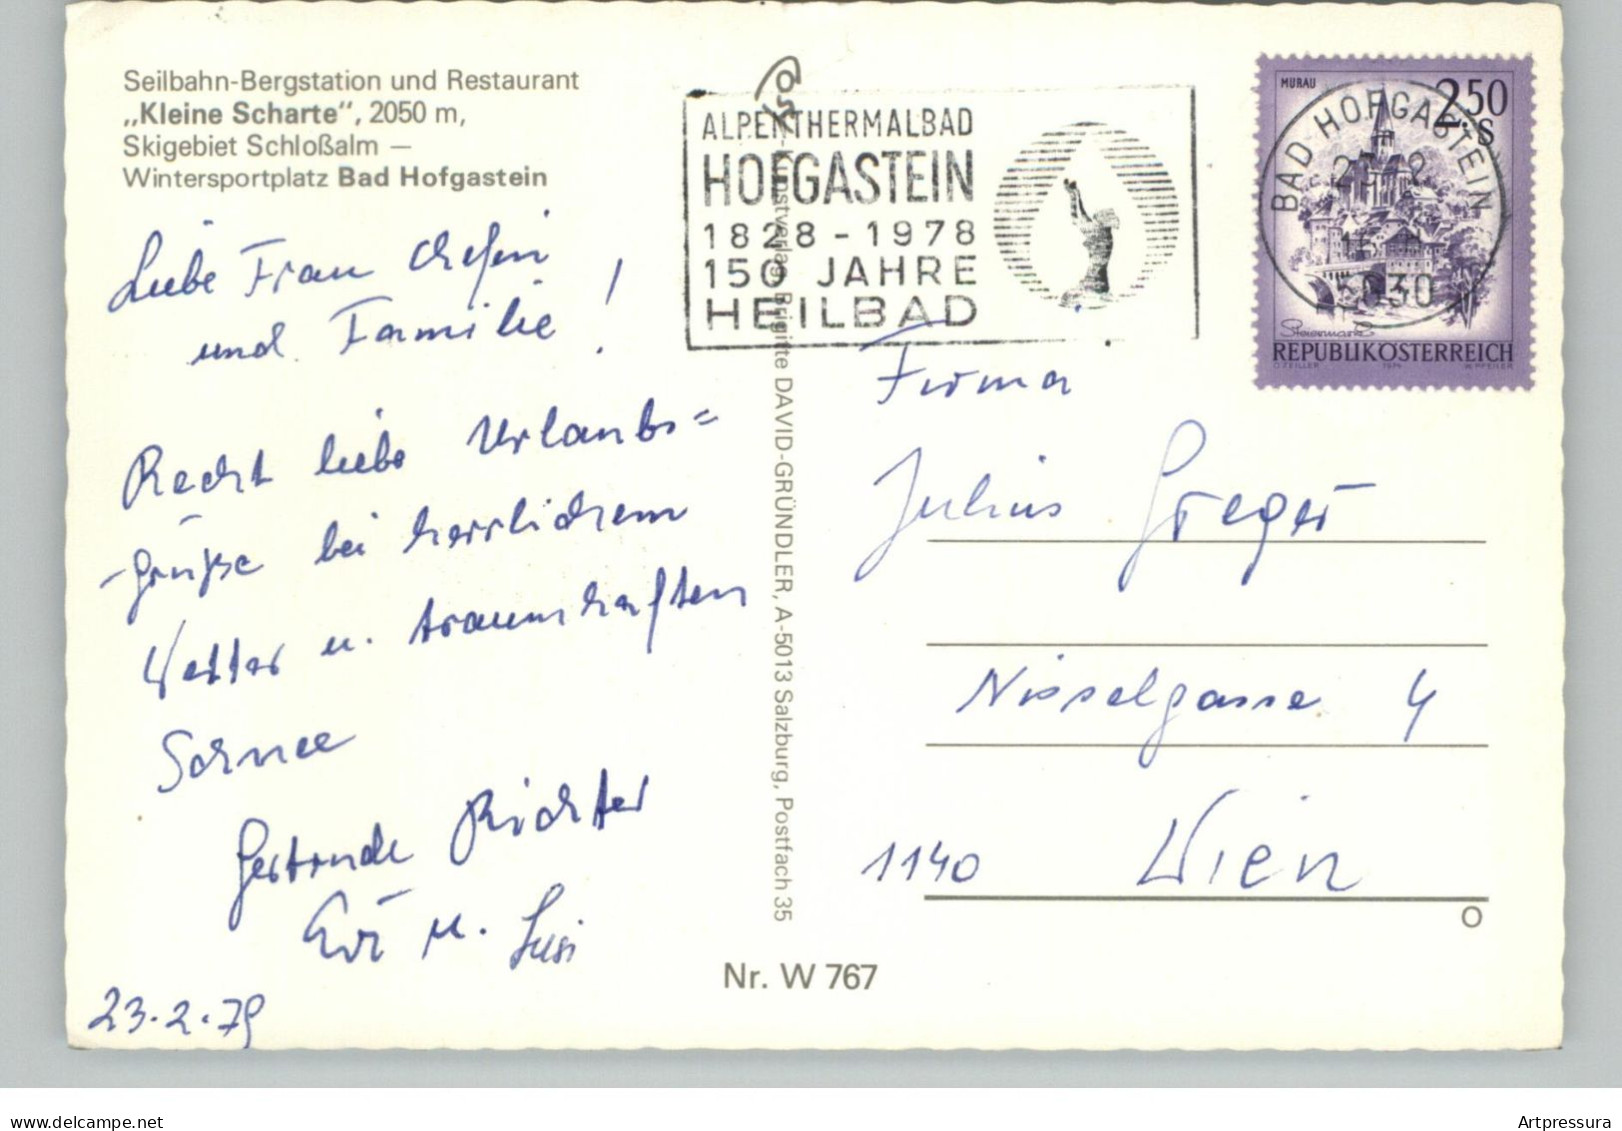 Seilbahn-Bergstation und Restaurant
„Kleine Scharte“, 2050 m,
Skigebiet Schloßalm —
Wintersportplatz Bad Hofgastein
Liebe Frau Chefin
und Familie !
Recht liebe Urlaubs=
grüße bei herrlichem
Wetter u. traumhaften
Schnee
Gertrude Richter
Evi u. Susi
23.2.79
ALPENTHERMALBAD
HOFGASTEIN
1828-1978
150 JAHRE
HEILBAD
Brigitte DAVID-GRÜNDLER, A-5013 Salzburg, Postfach 35
Nr. W 767
MURAU
2.50
S
BAD HOFGASTEIN
5630
Steiermark
REPUBLIK ÖSTERREICH
Firma
Julius Greger
Nisselgasse 4
1140 Wien
O
delcampe.net
Artpressura